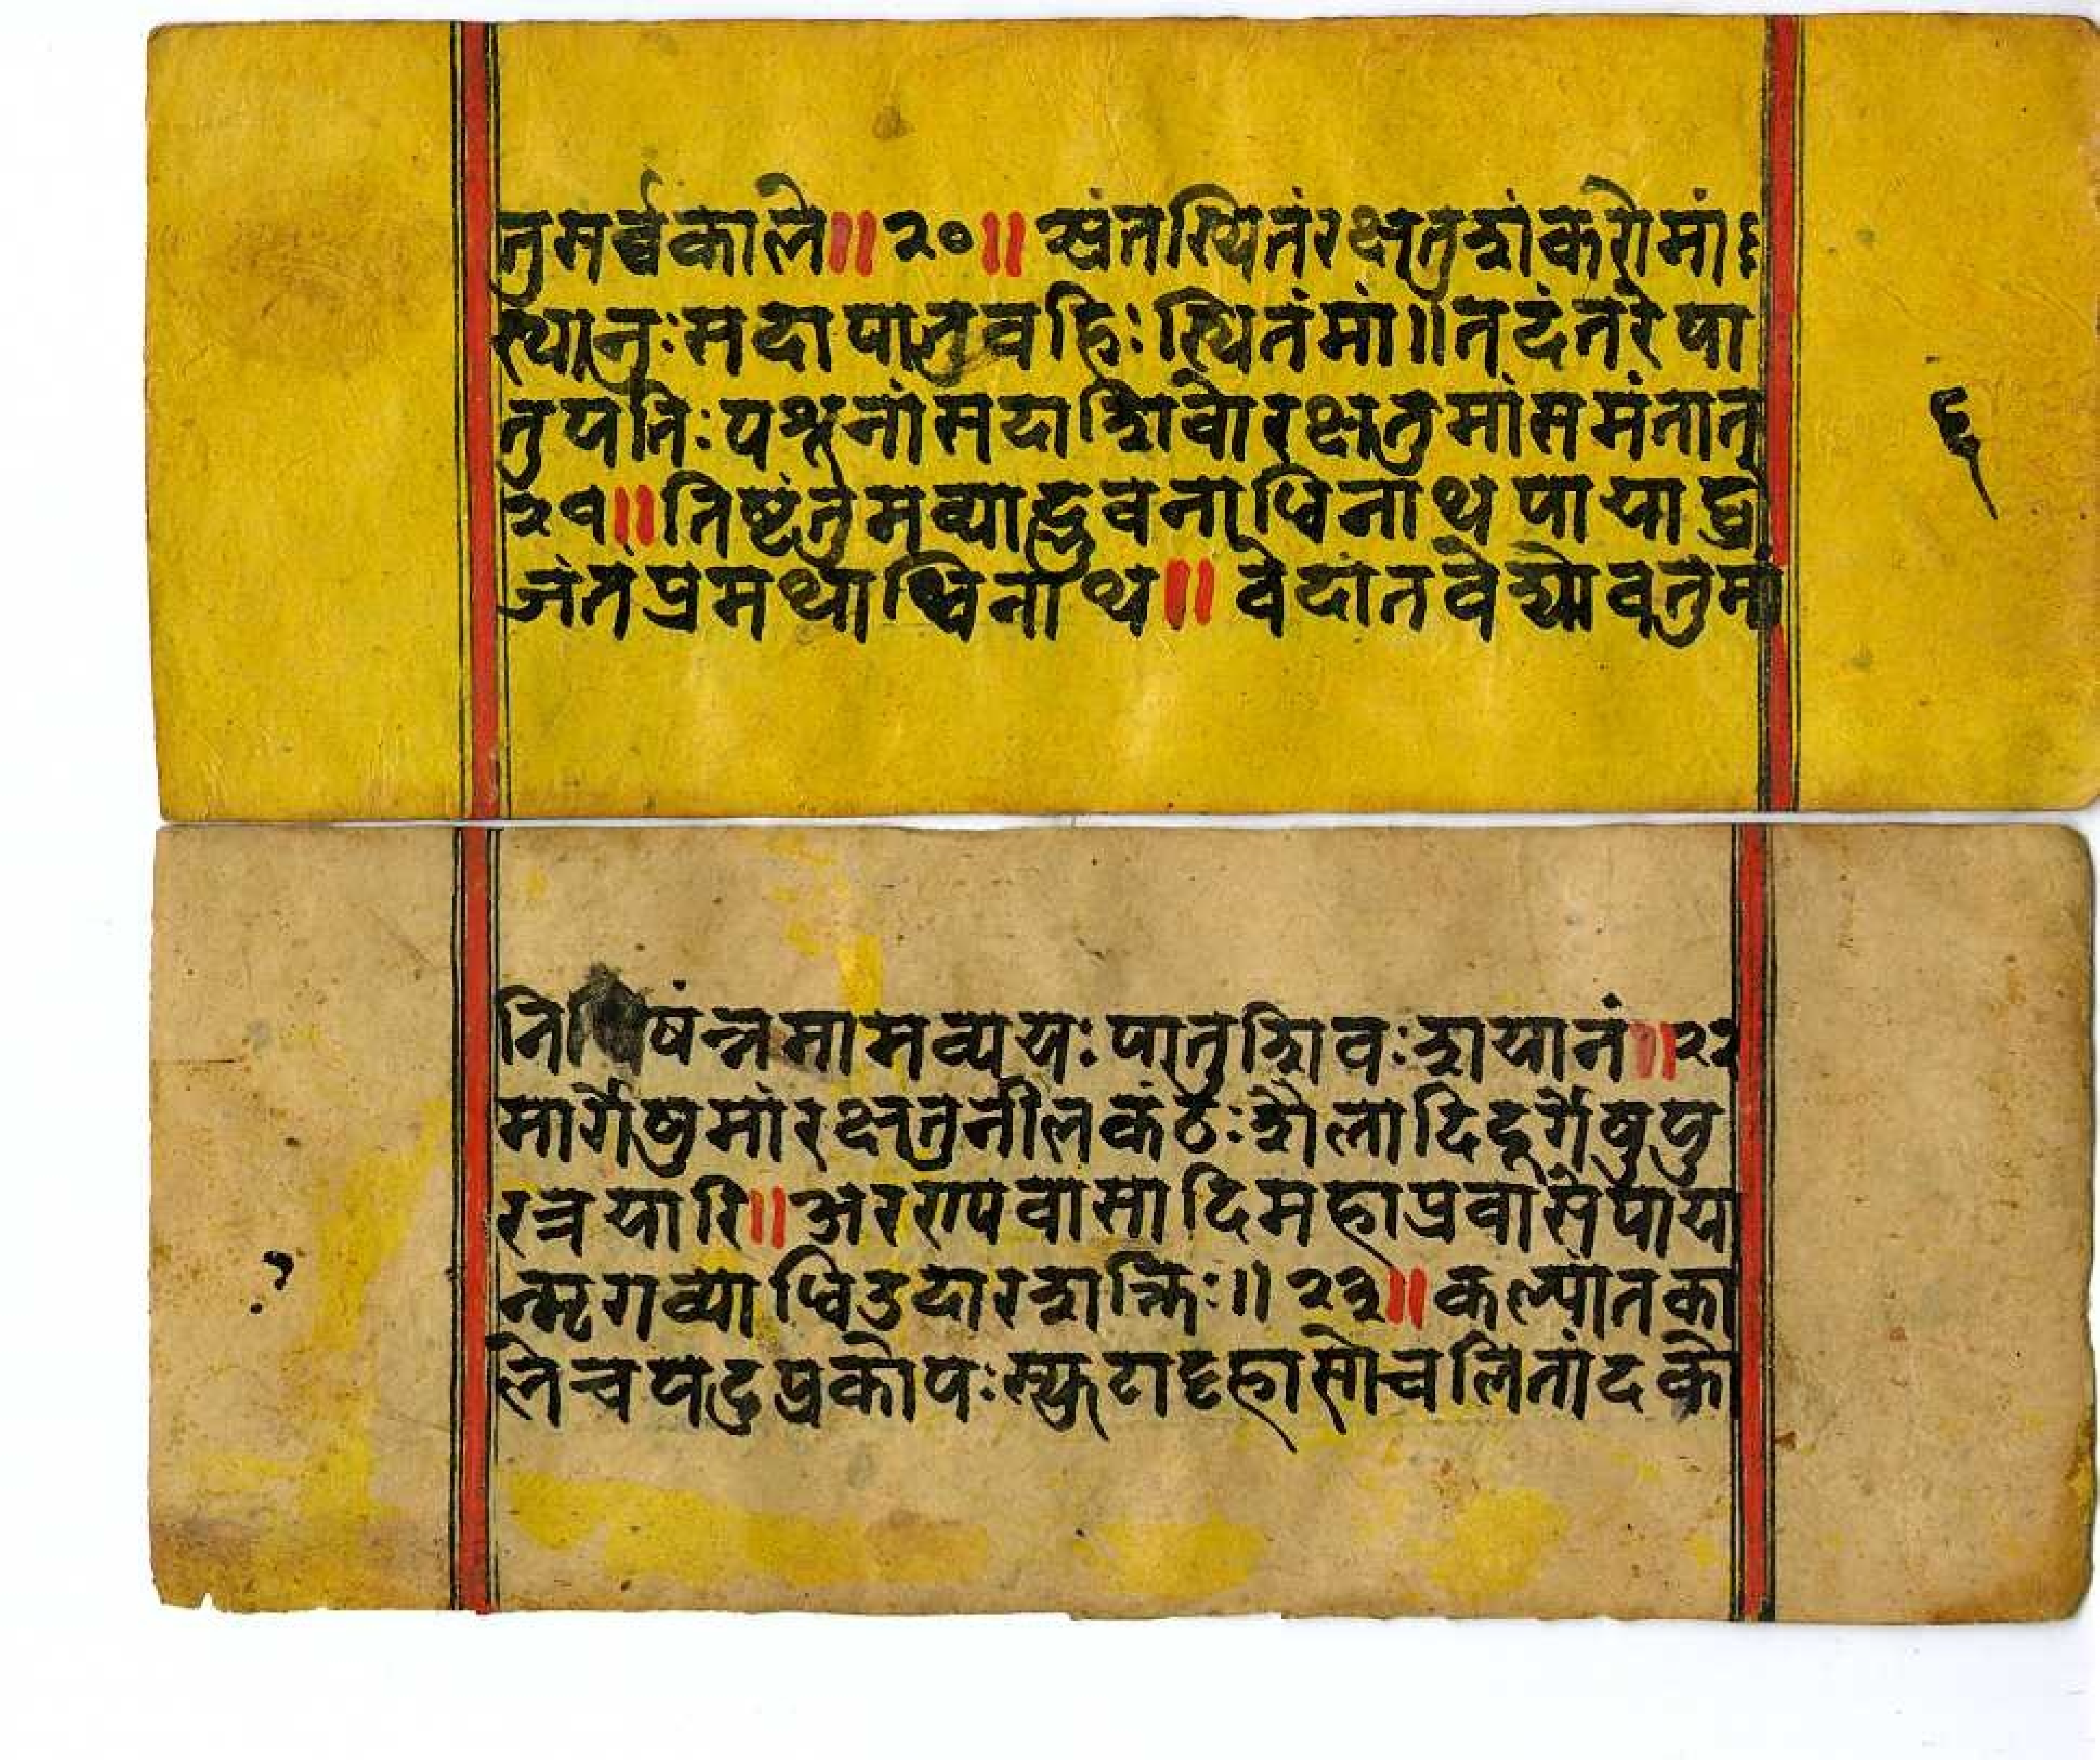 तुमर्व्वकाले॥२०॥ अंतस्थितंरक्षतुशंकरोमां
स्थानुःसदापातुवहिःस्थितंमां॥तदंतरेपा
तुपतिःपश्नूनांसदाशिवोरक्षतुमांसमंतात्
२१॥तिष्टंतमव्याद्भुवनाधिनाथपायाद्व्र
जंतंप्रमथाधिनाथ॥वेदांतवेद्योवतुमां
६
षंन्नमामव्ययःपातुशिवःशयानं॥२२
मार्गेषुमांरक्षतुनीलकंठःशैलादिदूर्गेषुपु
रत्रयारि॥अरण्यवासादिमहाप्रवासेपाया
न्मृगव्याधिउदारशक्तिः॥२३॥कल्पांतका
लेचपटुप्रकोपःस्फुटाट्टहासोचलितांदको